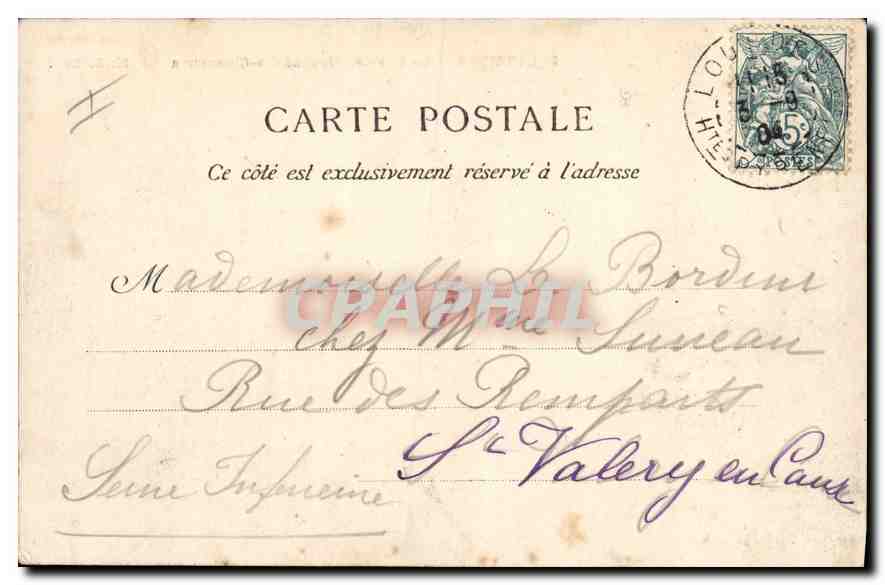 CARTE POSTALE
Ce côté est exclusivement réservé à l'adresse
LOURDES
Htes PYRENEES
5
9
04
5c
POSTES
Mademoiselle Le Bordeur
CPAPHIL
chez Mme Suneau
Rue des Remparts
St Valery en Caux
Seine Inférieure